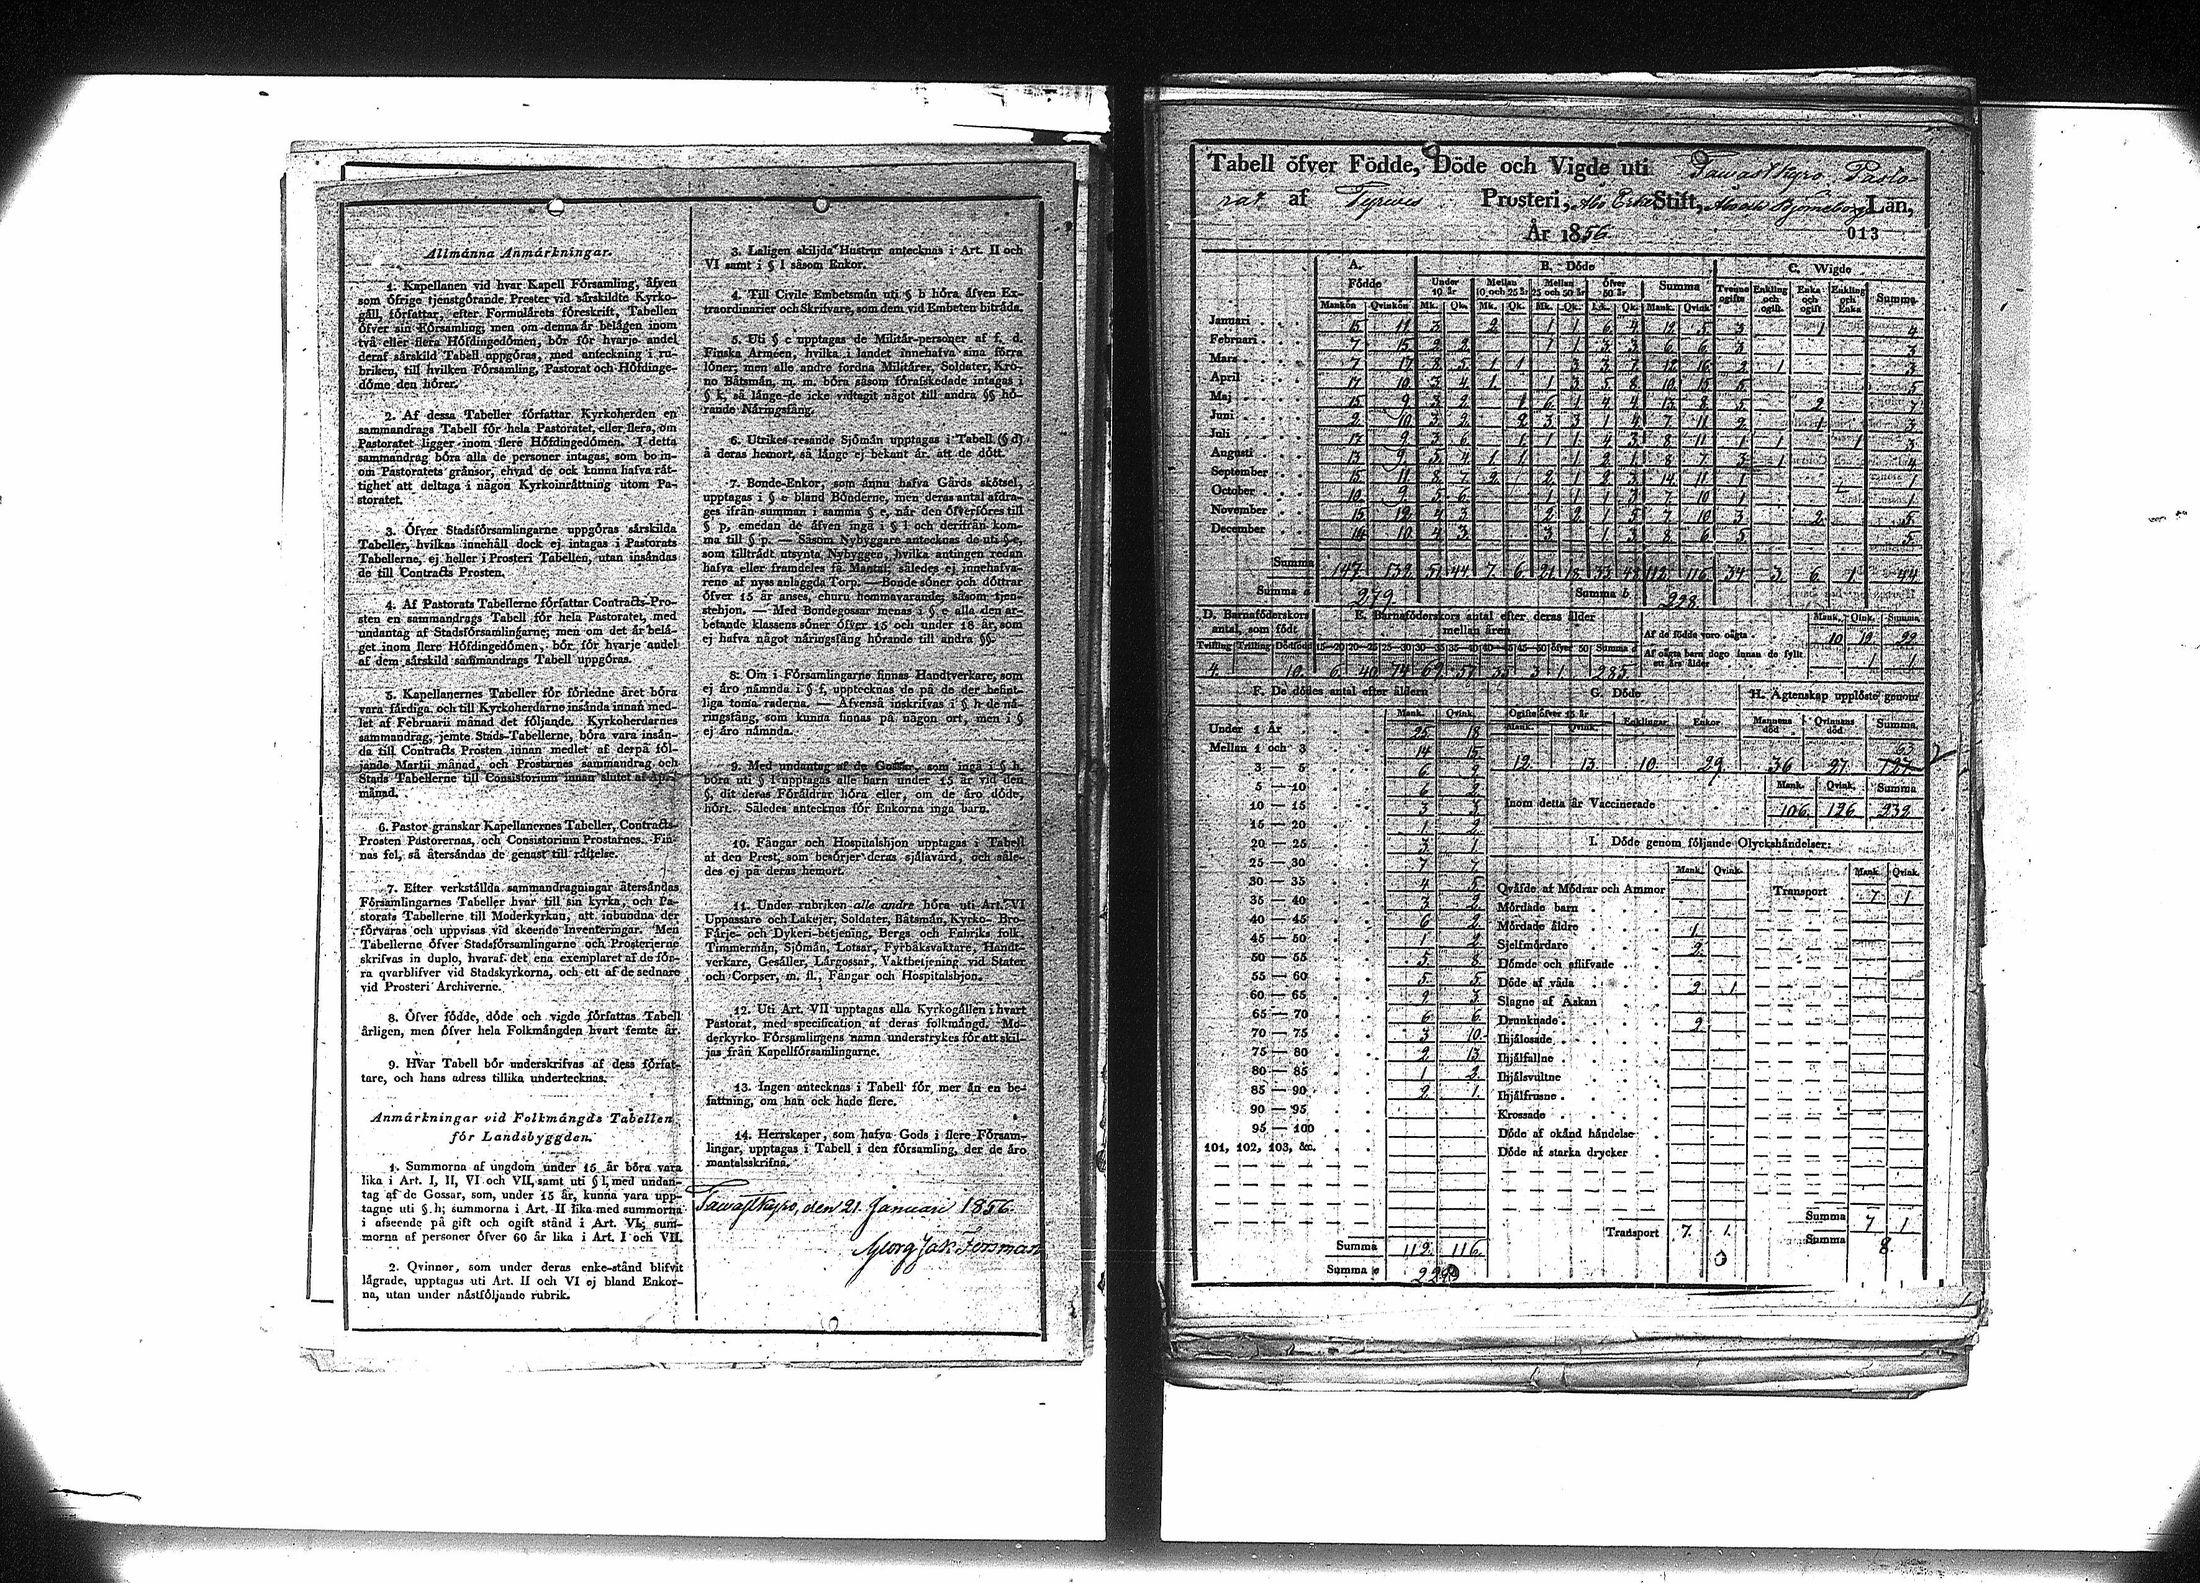 Allmänna Anmärkningar.
1. Kapellanen vid hvar Kapell Församling, äfven
som öfrige tjenstgörande Prester vid särskildte Kyrko-
gäll, författar, efter Formulärets föreskrift, Tabellen
öfver sin Församling; men om denna är belägen inom
två eller flera Höfdingedömen, bör för hvarje andel
deraf särskild Tabell uppgöras, med anteckning i ru-
briken, till hvilken Församling, Pastorat och Höfdinge-
döme den hörer.
2. Af dessa Tabeller författar Kyrkoherden en
sammandrags Tabell för hela Pastoratet, eller flera, om
Pastoratet ligger inom flere Höfdingedömen. I detta
sammandrag böra alla de personer intagas, som bo in-
om Pastoratets gränsor, ehvad de ock kunna hafva rät-
tighet att deltaga i någon Kyrkoinrättning utom Pa-
storatet.
3. Öfver Stadsförsamlingarne uppgöras särskilda
Tabeller, hvilkas innehåll dock ej intagas i Pastorats
Tabellerne, ej heller i Prosteri Tabellen, utan insändas
de till Contracts Prosten.
4. Af Pastorats Tabellerne författar Contracts-Pro-
sten en sammandrags Tabell för hela Pastoratet, med
undantag af Stadsförsamlingarne; men om det är belä-
get inom flere Höfdingedömen, bör för hvarje andel
af dem särskild sammandrags Tabell uppgöras.
5. Kapellanernes Tabeller för förledne året böra
vara färdiga och till Kyrkoherdarne insända innan med-
let af Februarii månad det följande. Kyrkoherdarnes
sammandrag, jemte Stads-Tabellerne, böra vara insän-
da till Contracts Prosten innan medlet af derpå föl-
jande Martii månad, och Prostarnes sammandrag och
Stads Tabellerne till Consistorium innan slutet af April
månad.
6. Pastor granskar Kapellanernes Tabeller, Contracts-
Prosten Pastorernas, och Consistorium Prostarnes. Fin-
nas fel, så återsändas de genast till rättelse.
7. Efter verkställda sammandragningar återsändas
Församlingarnes Tabeller hvar till sin kyrka, och Pa-
storats Tabellerne till Moderkyrkan, att inbundna der
förvaras och uppvisas vid skeende Inventeringar. Men
Tabellerne öfver Stadsförsamlingarne och Prosterierne
skrifvas in duplo, hvaraf det ena exemplaret af de för-
ra qvarblifver vid Stadskyrkorna, och ett af de sednare
vid Prosteri Archiverne.
8. Öfver födde, döde och vigde författas Tabell
årligen, men öfver hela Folkmängden hvart femte år.
9. Hvar Tabell bör underskrifvas af dess förfat-
tare, och hans adress tillika undertecknas.
Anmärkningar vid Folkmängds Tabellen
för Landsbyggden.
1. Summorna af ungdom under 15 år böra vara
lika i Art. I, II, VI och VII, samt uti § l, med undan-
tag af de Gossar, som, under 15 år, kunna vara upp-
tagne uti § h; summorna i Art. II lika med summorna
i afseende på gift och ogift stånd i Art. VI; sum-
morna af personer öfver 60 år lika i Art. I och VII.
2. Qvinner, som under deras enke-stånd blifvit
lägrade, upptagas uti Art. II och VI ej bland Enkor-
na, utan under nästföljande rubrik.
3. Laligen skiljda Hustrur antecknas i Art. II och
VI samt i § l såsom Enkor.
4. Till Civile Embetsmän uti § b höra äfven Ex-
traordinarier och Skrifvare, som dem vid Embeten biträda.
5. Uti § c upptagas de Militär-personer af f. d.
Finska Arméen, hvilka i landet innehafva sina förra
löner; men alle andre fordna Militärer, Soldater, Kro-
no Båtsmän, m. m. böra såsom förafskedade intagas i
§ k, så länge de icke vidtagit något till andra §§ hö-
rande Näringsfång.
6. Utrikes resande Sjömän upptagas i Tabell (§ d)
å deras hemort, så länge ej bekant är, att de dött.
7. Bonde-Enkor, som ännu hafva Gårds skötsel,
upptagas i § e bland Bönderne, men deras antal afdra-
ges ifrån summan i samma § e, när den öfverföres till
§ p, emedan de äfven ingå i § l och derifrån kom-
ma till § p. — Såsom Nybyggare antecknas de uti § e,
som tillträdt utsynta Nybyggen, hvilka antingen redan
hafva eller framdeles få Mantal, således ej innehafva-
rene af nyss anlaggda Torp. — Bondesöner och döttrar
öfver 15 år anses, ehuru hemmavarande, såsom tjen-
stehjon. — Med Bondegossar menas i § e alla den ar-
betande klassens söner öfver 15 och under 18 år, som
ej hafva något näringsfång hörande till andra §§.
8. Om i Församlingarne finnas Handtverkare, som
ej äro nämnda i § f, upptecknas de på de der befint-
liga toma raderna. — Äfvenså inskrifvas i § h de nä-
ringsfång, som kunna finnas på någon ort, men i §
ej äro nämnda.
9. Med undantag af de Gossar, som ingå i § h,
böra uti § l upptagas alle barn under 15 år vid den
§, dit deras Föräldrar höra eller, om de äro döde,
hört. Således antecknas för Enkorna inga barn.
10. Fångar och Hospitalshjon upptagas i Tabell
af den Prest, som besörjer deras själavård, och såle-
des ej på deras hemort.
11. Under rubriken alle andre höra uti Art. VI
Uppassare och Lakejer, Soldater, Båtsmän, Kyrko- Bro-
Färje- och Dykeri-betjening, Bergs och Fabriks folk,
Timmermän, Sjömän, Lotsar, Fyrbåksvaktare, Handt-
verkare, Gesäller, Lärgossar, Vaktbetjening vid Stater
och Corpser, m. fl., Fångar och Hospitalshjon.
12. Uti Art. VII upptagas alla Kyrkogällen i hvart
Pastorat, med specification af deras folkmängd. Mo-
derkyrko Församlingens namn understrykes för att skil-
jas från Kapellförsamlingarne.
13. Ingen antecknas i Tabell för mer än en be-
fattning, om han ock hade flere.
14. Herrskaper, som hafva Gods i flere Församl-
lingar, upptagas i Tabell i den församling, der de äro
mantalsskrifna.
Tawastkyro, den 21. Januari 1856.
Georg Jak Forsman
Tabell öfver Födde, Döde och Vigde uti Tawastkyro Pasto-
rat af Tyrvis Prosteri, Åbo Erke Stift, Åbo och Björneborgs Län,
År 1856.
013
A. Födde B. Döde C. Wigde
Under 10 år Mellan 10 och 25 år Mellan 25 och 50 år Öfver 50 år Summa Tvenne ogifte Enkling och ogift Enka och ogift Enkling och Enka Summa
Mankön Qvinkön Mk. Qk. Mk. Qk. Mk. Qk. Mk. Qk. Mank. Qvink.
Januari 15 11 3 2 1 1 6 4 12 5 3 1 4
Februari 7 15 2 2 1 1 3 3 6 6 3 3
Mars 7 17 8 5 1 1 3 3 7 12 16 2 1 3
April 17 10 3 4 1 1 3 5 8 10 15 5 5
Maj 15 9 3 2 1 6 1 4 4 13 8 5 2 7
Juni 2 10 3 2 2 3 3 1 4 7 11 2 1 3
Juli 17 9 3 6 1 1 1 3 8 11 1 1 1 3
Augusti 13 9 5 4 1 1 1 2 1 8 7 3 1 4
September 15 11 8 7 2 2 1 2 3 14 11 1 1
October 10 9 5 6 1 1 1 3 7 10 1 1
November 15 12 4 3 2 2 1 5 7 10 3 2 5
December 14 10 4 3 3 1 3 8 6 5 5
Summa 147 132 51 44 7 6 21 18 33 48 112 116 34 3 6 1 44
Summa a 279. Summa b 228.
D. Barnaföderskors antal, som födt E. Barnaföderskors antal efter deras ålder mellan åren
Mank. Qink. Summa
Af de födde voro oägta 10 12 22
Af oägta barn dogo innan de fyllt ett års ålder 1 1
Tvilling Trilling Dödfödt 15—20 20—25 25—30 30—35 35—40 40—45 45—50 öfver 50 Summa d
4. 10. 6 40 74 69 57 35 3 1 285.
F. De dödes antal efter åldern G. Döde H. Ägtenskap upplöste genom
Mank. Qvink.
Ogifte öfver 15 år Enklingar Enkor Mannens död Qvinnans död Summa
Mank. Qvink.
12. 13 10. 29. 36 27 63 127
Mank. Qvink. Summa
Inom detta år Vaccinerade 106 126 232
Under 1 År 25 18
Mellan 1 och 3 14 15
3 — 5 6 9
5 — 10 6 2
10 — 15 3 3
15 — 20 1 2
20 — 25 3 1
25 — 30 7 7
30 — 35 4 5
35 — 40 3 2
40 — 45 6 2
45 — 50 1 2
50 — 55 5 8
55 — 60 5 5
60 — 65 9 3
65 — 70 6 6
70 — 75 3 10
75 — 80 2 13
80 — 85 1 2
85 — 90 2 1
90 — 95
95 — 100
101, 102, 103, &c.
Summa 112 116
Summa e 228
I. Döde genom följande Olyckshändelser:
Mank. Qvink. Mank. Qvink.
Qväfde af Mödrar och Ammor
Mördade barn
Mördade äldre 1
Sjelfmördare 2
Dömde och aflifvade
Döde af våda 2 1
Slagne af Åskan
Drunknade 2
Ihjälosade
Ihjälfallne
Ihjälsvultne
Ihjälfrusne
Krossade
Döde af okänd händelse
Döde af starka drycker
Transport 7 1
Transport 7 1
Summa 7 1
Summa 8